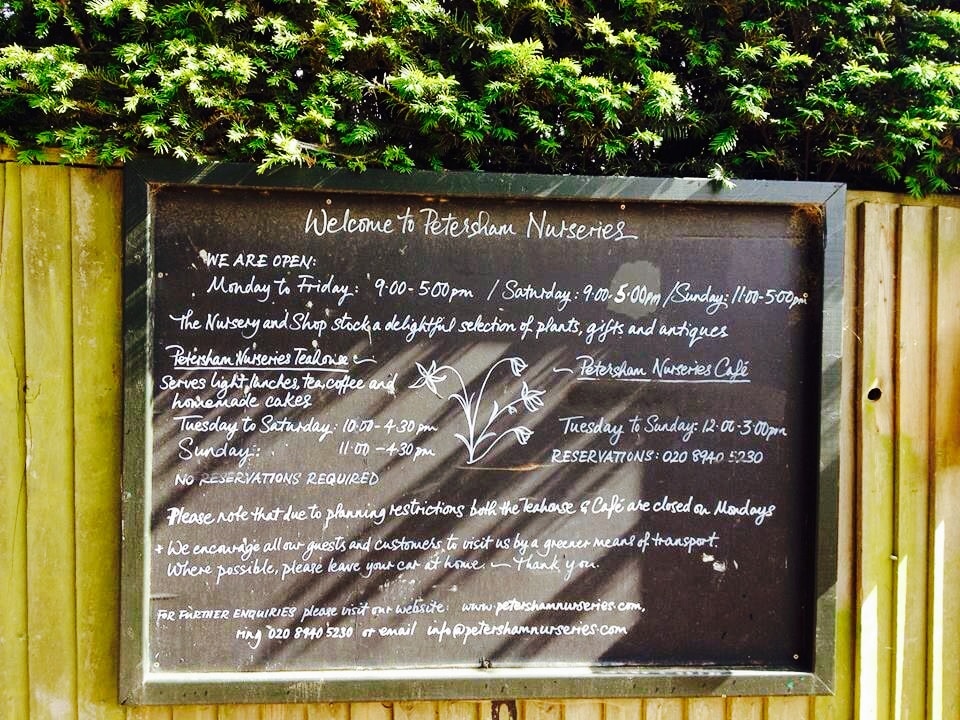 Welcome to Petersham Nurseries
WE ARE OPEN:
Monday to Friday: 9:00 - 5:00pm / Saturday: 9:00-5:00pm / Sunday: 11:00-5:00pm
The Nursery and Shop stock a delightful selection of plants, gifts and antiques
Petersham Nurseries Teahouse
Serves light lunches, tea, coffee and
homemade cakes
Tuesday to Saturday: 10:00 - 4:30pm
Sunday: 11:00 - 4:30pm
NO RESERVATIONS REQUIRED
Petersham Nurseries Café
Tuesday to Sunday: 12:00-3:00pm
RESERVATIONS: 020 8940 5230
Please note that due to planning restrictions both the Teahouse & Café are closed on Mondays
* We encourage all our guests and customers to visit us by a greener means of transport.
Where possible, please leave your car at home. — Thank you.
FOR FURTHER ENQUIRIES please visit our website: www.petershamnurseries.com,
ring 020 8940 5230 or email info@petershamnurseries.com